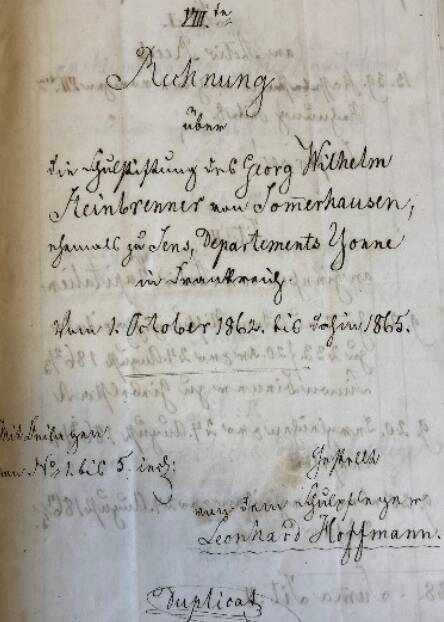 VIII.te
Rechnung
über
die Schulstiftung des Georg Wilhelm
Steinbrenner von Sommerhausen,
ehemals zu Sens, Departements Yonne
in Frankreich.
Vom 1. October 1862. bis dahin 1865.
Mit Beilagen
von No. 1. bis 5. incl:
Gestellt
von dem Schulpfleger
Leonhard Hoffmann.
Duplicat